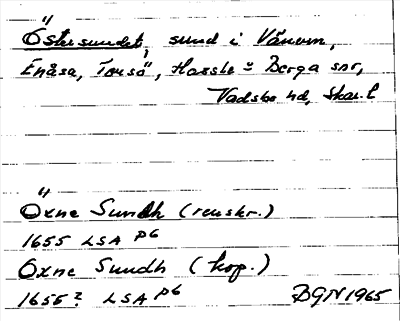 Östersundet, sund i Vänern,
Enåsa, Torsö, Hassle o Berga snr,
Vadsbo hd, Skar. l
Öxne Sundh (renskr.)
1655 LSA P6
Öxne Sundh (kop.)
1655? LSA P6 BGN 1965